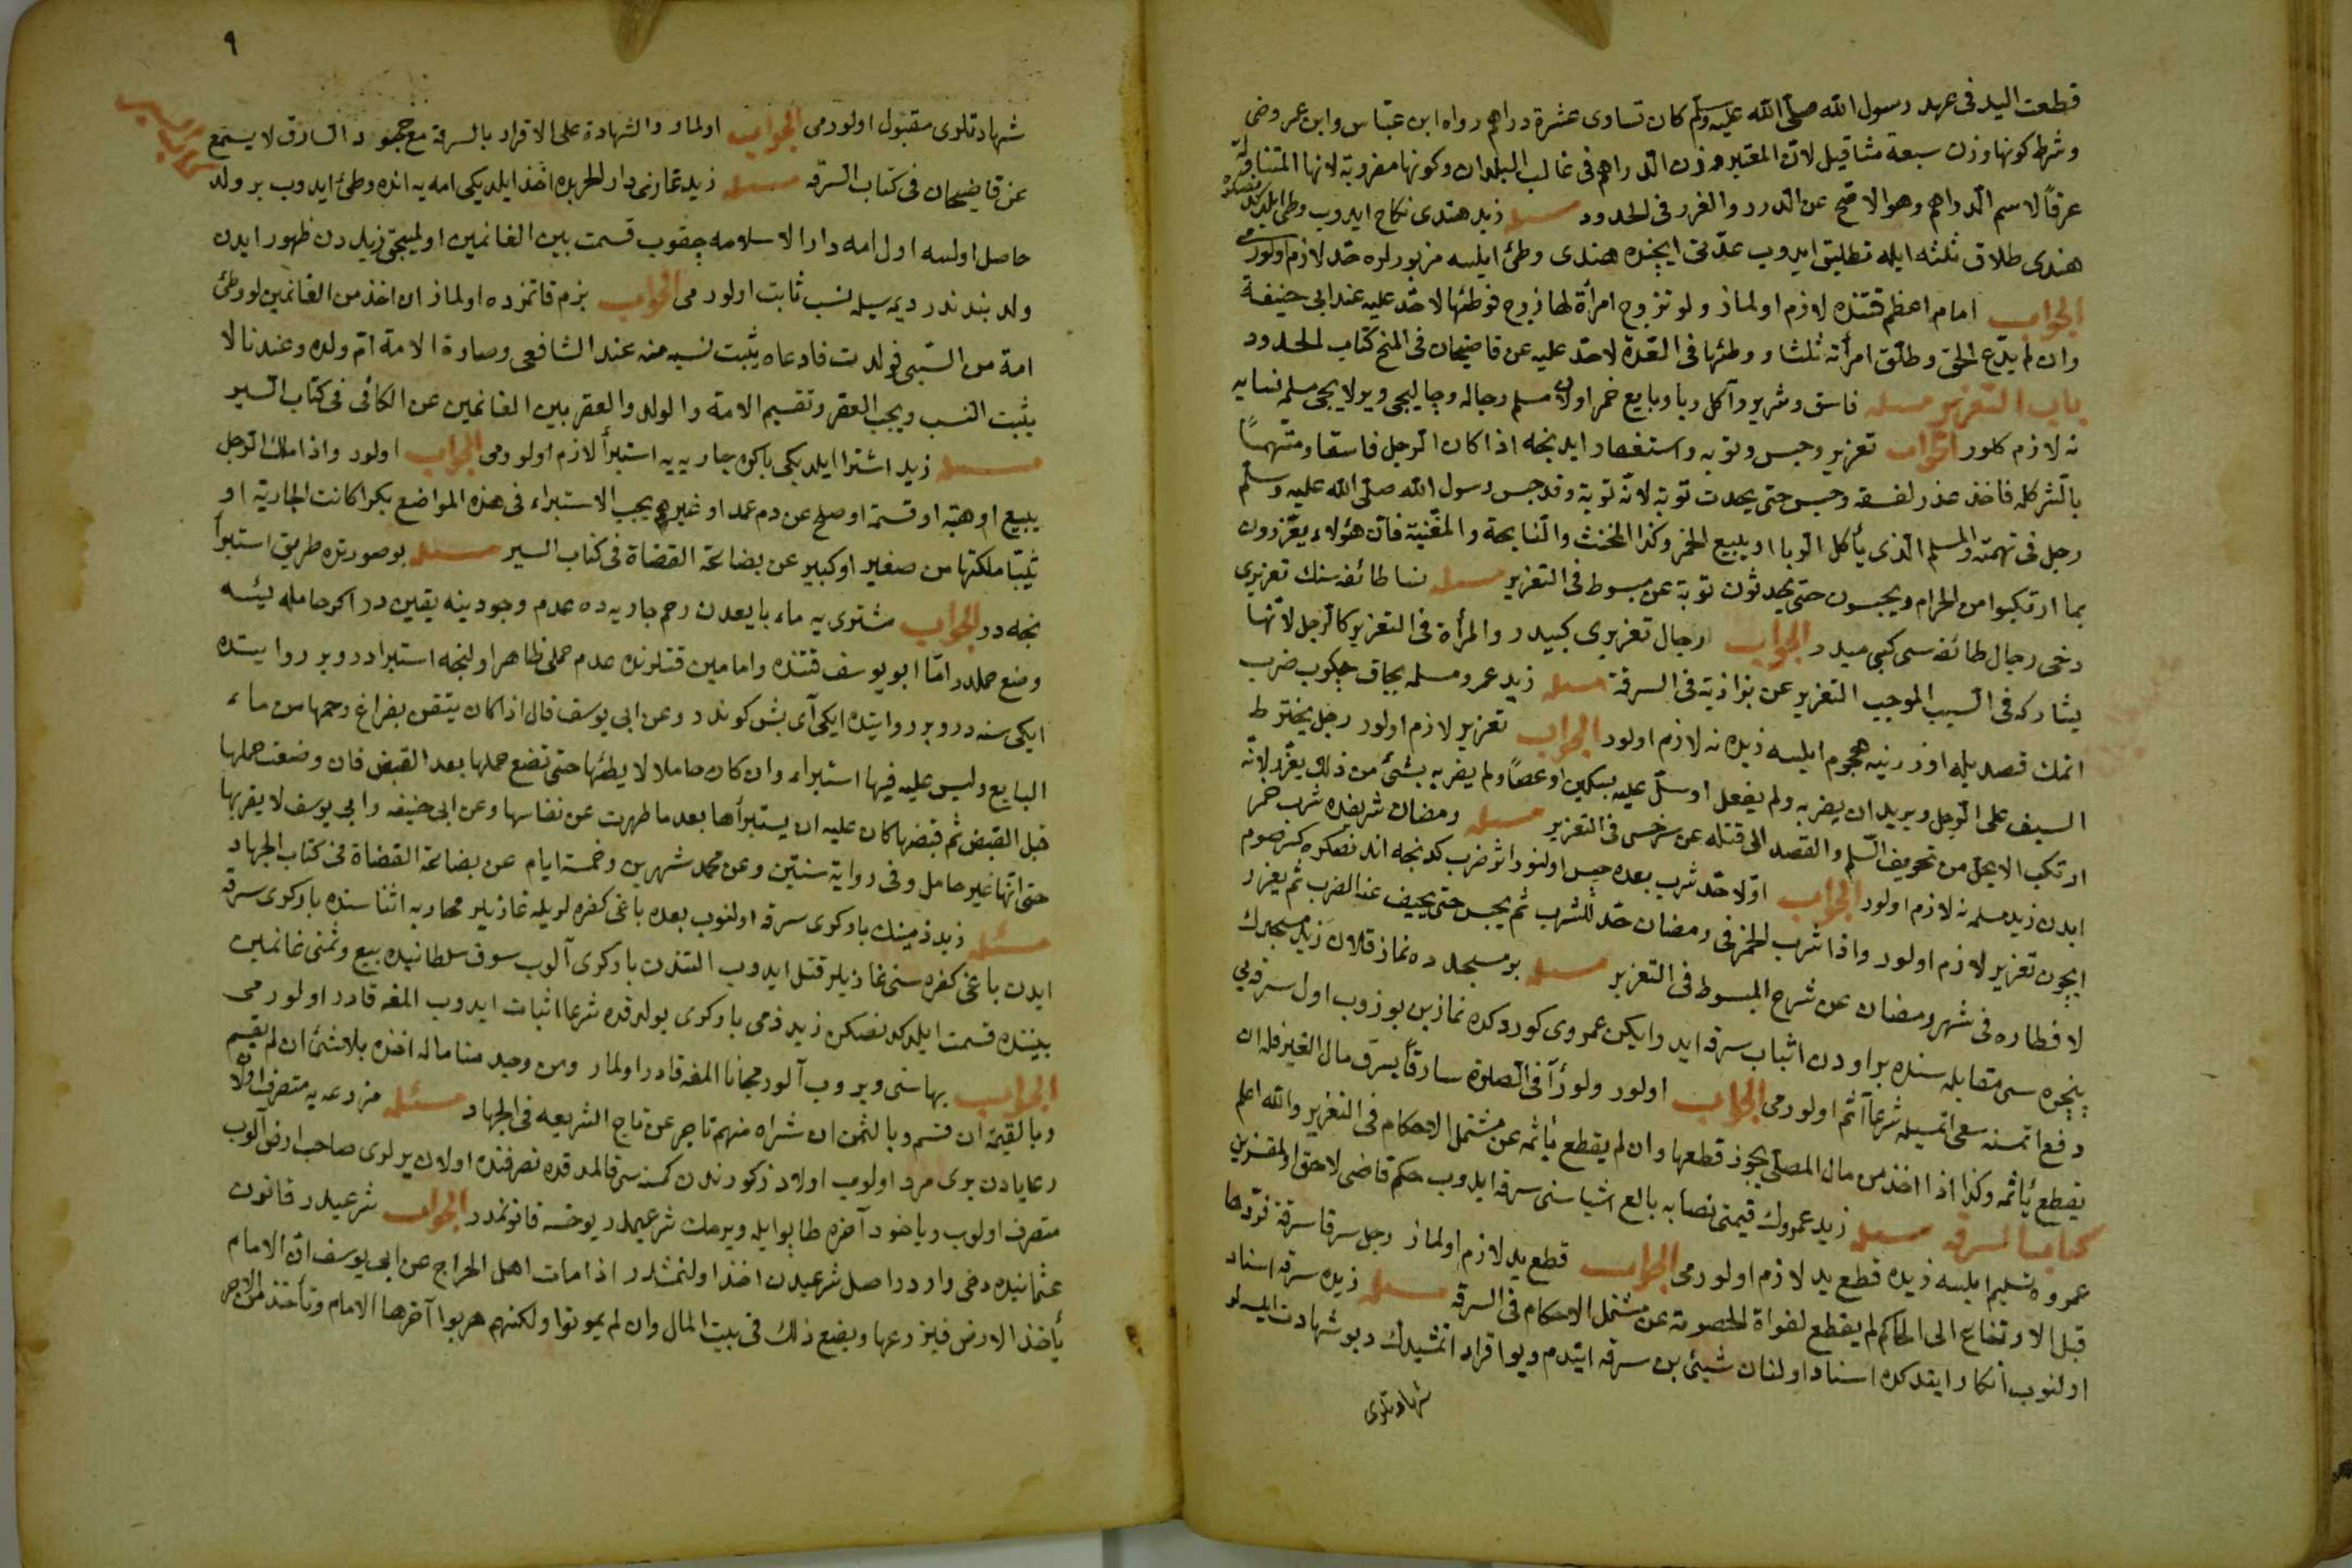 قطعت اليد فى عهد رسول الله صلى الله عليه وسلم كان تساوى عشرة دراهم رواه ابن عباس وابن عمر وفى
وشرط كونها وزن سبعة مثاقيل لان المعتبر وزن الدراهم فى غالب البلدان وكونها مضروبة لانها المتناولة
عرفاً لاسم الدراهم وهو الاصح عن الدرر والغرر فى الحدود مسئله زيد هندى نكاح ايدوب وطى ايلدكدنصكره
هندى طلاق ثلثه ايله تطليق ايدوب عدتى ايچنده هندى وطئ ايلسه مزبورلره حد لازم اولورمى
الجواب امام اعظم قتنده لازم اولماز ولو تزوج امرأة لها زوج فوطئها لا حد عليه عند ابى حنيفة
وان لم يدّع الحق وطلق امرأته ثلثا ووطئها فى العدة لا حد عليه عن قاضيخان فى المنح كتاب الحدود
باب التعزير مسئله فاسق وشرير وآكل ربا وبايع خمر اولان مسلم رجاله وچاليجى ويولايجى مسلمه نسايه
نه لازم كلور الجواب تعزير وحبس وتوبه واستغفار ايدنجه اذا كان الرجل فاسقا ومتهمًا
بالشر كله فاخذ عذر لفسقه وحبس حتى يحدث توبة لانه توبة وقد حبس رسول الله صلى الله عليه وسلم
رجل فى تهمته والمسلم الذى يأكل الربا او يبيع الخمر وكذا المخنث والنايحة والمغنية فان هؤلاء يعزرون
بما ارتكبوا من الحرام ويحبسون حتى يحدثون توبة عن مبسوط فى التعزير مسئله نسا طائفه سنك تعزيرى
دخى رجال طائفه سى كبى ميدر الجواب رجال تعزيرى كبيدر والمرأة فى التعزير كالرجل لانها
يشاركه فى السبب الموجب التعزير عن بزازية فى السرقة مسئله زيد عمرو مسلمه بچاق چكوب ضرب
اتمك قصديله اوزرينه هجوم ايلسه زيده نه لازم اولور الجواب تعزير لازم اولور رجل يخترط
السيف على الرجل ويريد ان يضربه ولم يفعل او سل عليه بسكين او عصاً ولم يضربه بشئ من ذلك يعزر لانه
ارتكب الايحل من تخويف المسلم والقصد الى قتله عن سرخسى فى التعزير مسئله رمضان شريفده شرب خمر
ايدن زيد مسلمه نه لازم اولور الجواب اولا حد شرب بعده حبس اولنور اثر ضرب كدنجه اندنصكره كسر صوم
ايچون تعزير لازم اولور واذا شرب الخمر فى رمضان حد للشرب ثم يحبس حتى يخيف عنه الضرب ثم يعزر
لا فطاره فى شهر رمضان عن شرح المبسوط فى التعزير مسئله بر مسجد ده نماز قلان زيد مسجدك
پنجره سى مقابله سنده بر اودن اثباب سرقه ايدر ايكن عمروى كوردكده نمازين بوزوب اول سرقه يى
دفع اتمسنه سعى اتميسله شرعاً آثم اولورمى الجواب اولور ولو رآ فى الصلوة سارقاً يسرق مال الغير فله ان
يقطع يأثمه وكذا اذا اخذ من مال المصلى يجوز قطعها وان لم يقطع يأثمه عن مشتمل الاحكام فى التعزير والله اعلم
كتاب السرقه مسئله زيد عمروك قيمتى نصابه بالغ اشياسنى سرقه ايدوب حكم قاضى لاحق اولمقزين
عمروه تسليم ايلسه زيده قطع يد لازم اولورمى الجواب قطع يد لازم اولماز رجل سرقا سرقة فردها
قبل الارتفاع الى الحاكم لم يقطع لفواة الخصومة عن مشتمل الاحكام فى السرقه مسئله زيده سرقه اسناد
اولنوب انكار ايتدكده اسناد اولنان شيئى بن سرقه ايتدم ديو اقرار اتمشيدك ديو شهادت ايلسه لر
شهادتلرى
٩
شهادتلرى مقبول اولورمى الجواب اولماز والشهادة على الاقرار بالسرقة مع جحود السارق لا يسمع
عن قاضيخان فى كتاب السرقه مسئله زيد غازى دار الحربده اخذ ايلديكى امه يه انده وطئ ايدوب بر ولد
حاصل اولسه اول امه دار الاسلامه چقوب قسمت بين الغانمين اولميجق زيددن ظهور ايدن
ولد بندندر ديمه سيله نسب ثابت اولورمى الجواب بزم قاتمزده اولماز ان اخذ من الغانمين لو وطئ
امة من السبى فولدت فادعاه يثبت نسبه منه عند الشافعى وصارة الامة ام ولده وعندنا لا
يثبت النسب ويجب العقر وتقسيم الامة والولد والعقر بين الغانمين عن الكافى فى كتاب السير
مسئله زيد اشترا ايلديكى باكره جاريه يه استبرأ لازم اولورمى الجواب اولور واذا ملك الرجل
ببيع او هبة او قسمة او صلح عن دم عمد او غيره يجب الاستبراء فى هذه المواضع بكرا كانت الجارية او
ثيّبا ملكتها من صغير او كبير عن بضاعة القضاة فى كتاب السير مسئله بو صورتده طريق استبرأ
نجه در الجواب مشترى يه ماء بايعدن رحم جاريه ده عدم وجودينه يقين در اكر حامله ئيسه
وضع حملدر اما ابو يوسف قتنده وامامين قتلرنده عدم حملى ظاهر اولنجه استبرادر وبر روايتده
ايكى سنه در وبر روايتده ايكى آى بش كوندر وعن ابى يوسف قال اذا كان يتقن بفراغ رحمها من ماء
البايع وليس عليه فيها استبراء وان كان حاملا لا يطئها حتى تضع حملها بعد القبض فان وضعت حملها
قبل القبض ثم قبضها كان عليه ان يستبرأها بعد ما طهرت عن نفاسها وعن ابى حنيفه وابى يوسف لا يقربها
حتى انها غير حامل وفى رواية سنتين وعن محمد شهرين وخمسة ايام عن بضاعة القضاة فى كتاب الجهاد
مسئله زيد ذمينك باركيرى سرقه اولنوب بعده باغى كفره لريله غازيلر محاربه اثناسنده باركيرى سرقه
ايدن باغى كفره سنى غازيلر قتل ايدوب التندن باركيرى آلوب سوق سلطانيده بيع وثمنى غانمين
بيننده قسمت ايلدكدنصكره زيد ذمى باركيرى بولدقده شرعا اثبات ايدوب المغه قادر اولورمى
الجواب بهاسنى ويروب آلور مجانا المغه قادر اولماز ومن وجد منا ماله اخذه بلا شئ ان لم يقسم
وبالقيمة ان قسم وبالثمن ان شراه منهم تاجر عن تاج الشريعه فى الجهاد مسئله مزرعه يه متصرف اولان
رعايادن برى مرد اولوب اولاد ذكورندن كمسه سى قالمدقده تصرفنده اولان يرلرى صاحب ارض آلوب
متصرف اولوب وياخود آخره طاپو ايله ويرمك شرعيميدر يوخسه قانونمدر الجواب شرعيدر قانون
عثمانيده دخى واردر اصل شرعيدن اخذ اولنمشدر اذا مات اهل الخراج عن ابى يوسف ان الامام
يأخذ الارض فيزرعها ويضع ذلك فى بيت المال وان لم يموتوا ولكنهم هربوا آخرها الامام وتأخذ من الاجر